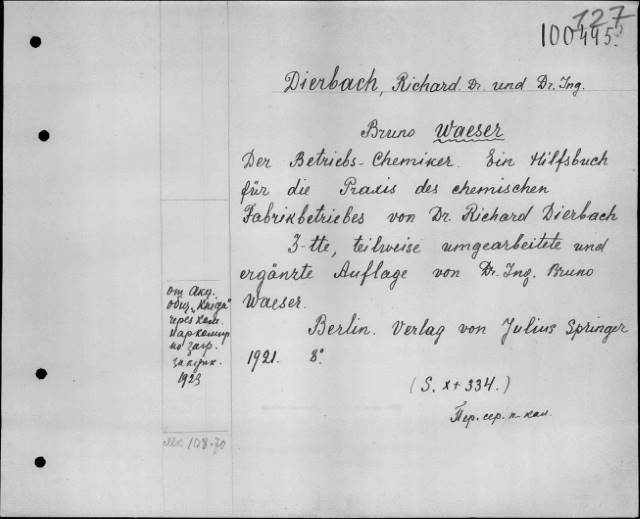 127
100445
Dierbach, Richard. Dr. und Dr. Ing.
Bruno Waeser
Der Betriebs-Chemiker. Ein Hilfsbuch
für die Praxis des chemischen
Fabrikbetriebes von Dr. Richard Dierbach
3-tte, teilweise umgearbeitete und
ergänzte Auflage von Dr. Ing. Bruno
Waeser.
Berlin. Verlag von Julius Springer
1921. 8°.
(S. X + 334.)
Пер. сер. п-кал.
от Акц.
общ. "Книга"
через
по загр.
закупк.
1923
108-70